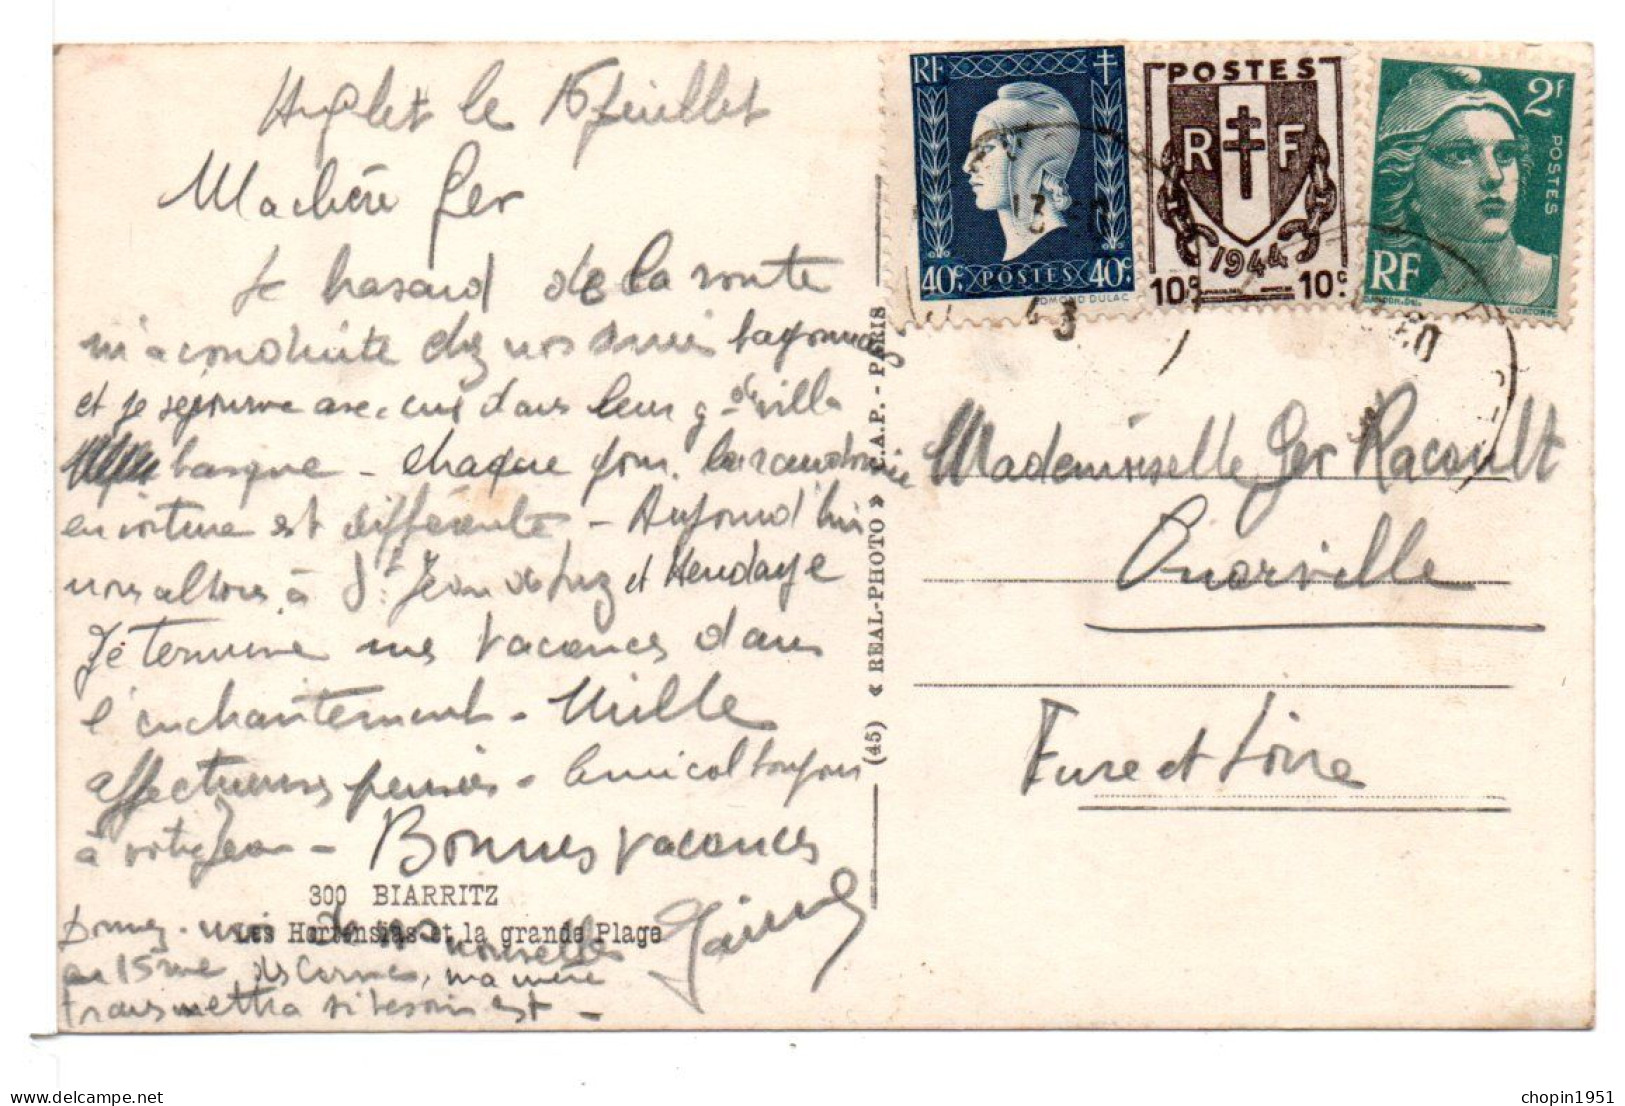 Anglet le 15 Juillet
Ma chère Ger
Le hasard de la route
m'a conduite chez nos amis bayonnais
et je séjourne avec eux dans leur gde villa
basque - chaque jour la randonnée
en voiture est différente - Aujourd'hui
nous allons à St Jean de Luz et Hendaye
Je termine mes vacances dans
l'enchantement - Mille
affectueuses pensées - amical toujours
à votre Jean - Bonnes vacances
300 BIARRITZ
Les Hortensias et la grande Plage
Donnez-moi de vos nouvelles
au 15 rue des Carmes, ma mère
transmettra si besoin est -
(45) « REAL-PHOTO » C.A.P. - PARIS
RF
40c POSTES 40c
EDMOND DULAC
POSTES
R F
1944
10c 10c
2F
POSTES
RF
GANDON.DEL
CORTOT.SC
Mademoiselle Ger Racault
Ouarville
Eure et Loire
chopin1951